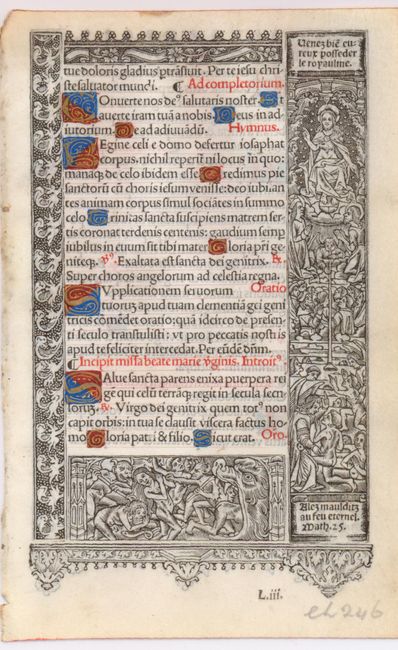 tue doloris gladius ptrãsiuit. Per te iesu chri
ste saluator mundi. ¶ Ad completorium.
Onuerte nos deº salutaris noster. Et
auerte iram tuã a nobis. Deus in ad
iutorium. De ad adiuuãdũ. Hymnus.
Regine celi e domo defertur iosaphat
corpus. nichil reperiũt ni locus in quo:
manaq̃ de celo ibidem esse. Credimus pie
sanctorũ cũ choris iesum venisse: deo iubilan
tes animam corpus simul sociãtes in summo
celo. Trinitas sancta suscipiens matrem ser
tis coronat terdenis centenis: gaudium semp
iubilus in euum sit tibi mater. Gloria pri geni
niteq̃. Exaltata est sancta dei genitrix.
Super choros angelorum ad celestia regna.
SVpplicationem seruorum Oratio
tuorũ deus tuam clementiã gei geni
tricis cõmẽdet oratio: quã ideirco de presen
ti seculo transtulisti: vt pro peccatis nostris
apud te feliciter intercedat. Per eũdẽ dñm.
¶ Incipit missa beate marie v̄ginis. Introitº
SAlue sancta parens enixa puerpera re
gẽ qui celũ terrãq̃ regit in secula secu
lorũ. Virgo dei genitrix quem totº non
capit orbis: in tua se clausit viscera factus ho
mo. Gloria patri & filio. Sicut erat. Oro.
Venez biẽ eu
reux posseder
le royaulme.
Alez maulditz
au feu eternel.
Math. 25.
L.iii.
eh 246